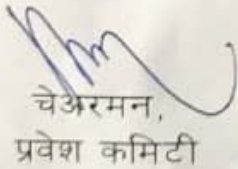 चेअरमन,
प्रवेश कमिटी